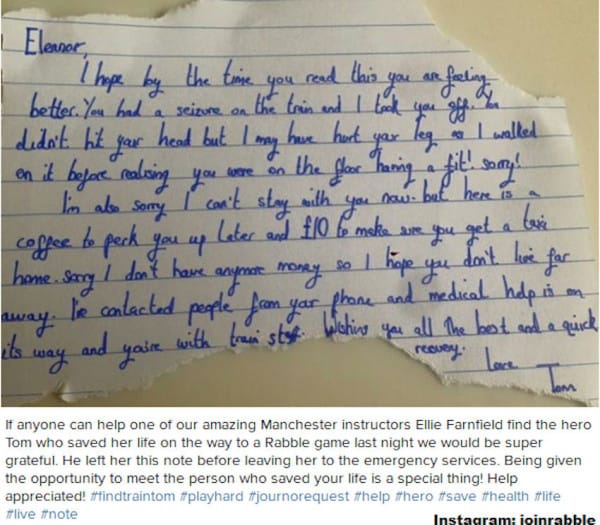 Eleanor,
I hope by the time you read this you are feeling
better. You had a seizure on the train and I took you off. You
didn't hit your head but I may have hurt your leg as I walked
on it before realising you were on the floor having a fit! Sorry!
I'm also sorry I can't stay with you now. but here is a
coffee to perk you up later and £10 to make sure you get a taxi
home. Sorry I don't have anymore money so I hope you don't live far
away. I've contacted people from your phone and medical help is on
its way and you're with train staff. Wishing you all the best and a quick
recovery.
Love
Tom
If anyone can help one of our amazing Manchester instructors Ellie Farnfield find the hero
Tom who saved her life on the way to a Rabble game last night we would be super
grateful. He left her this note before leaving her to the emergency services. Being given
the opportunity to meet the person who saved your life is a special thing! Help
appreciated! #findtraintom #playhard #journorequest #help #hero #save #health #life
#live #note
Instagram: joinrabble